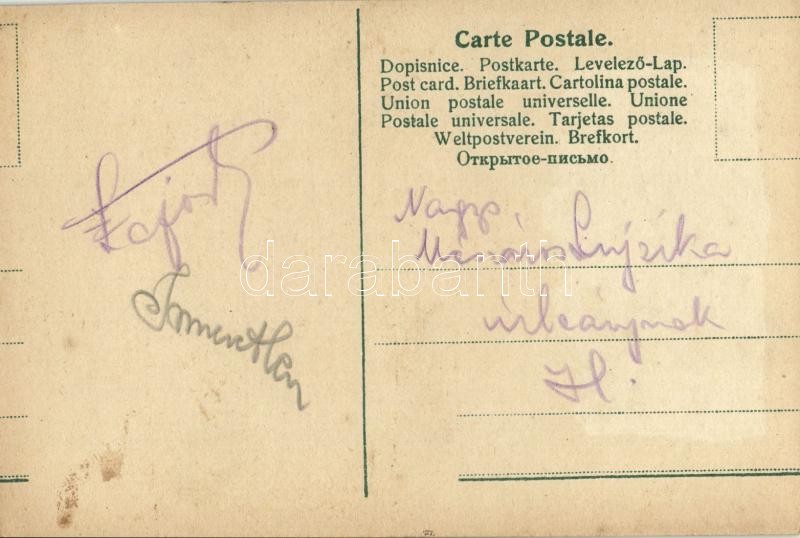 Carte Postale.
Dopisnice. Postkarte. Levelező-Lap.
Post card. Briefkaart. Cartolina postale.
Union postale universelle. Unione
Postale universale. Tarjetas postale.
Weltpostverein. Brefkort.
Открытое-письмо.
Lajos
Nagys.
Lujzika
úrleánynak
H.
darabanth